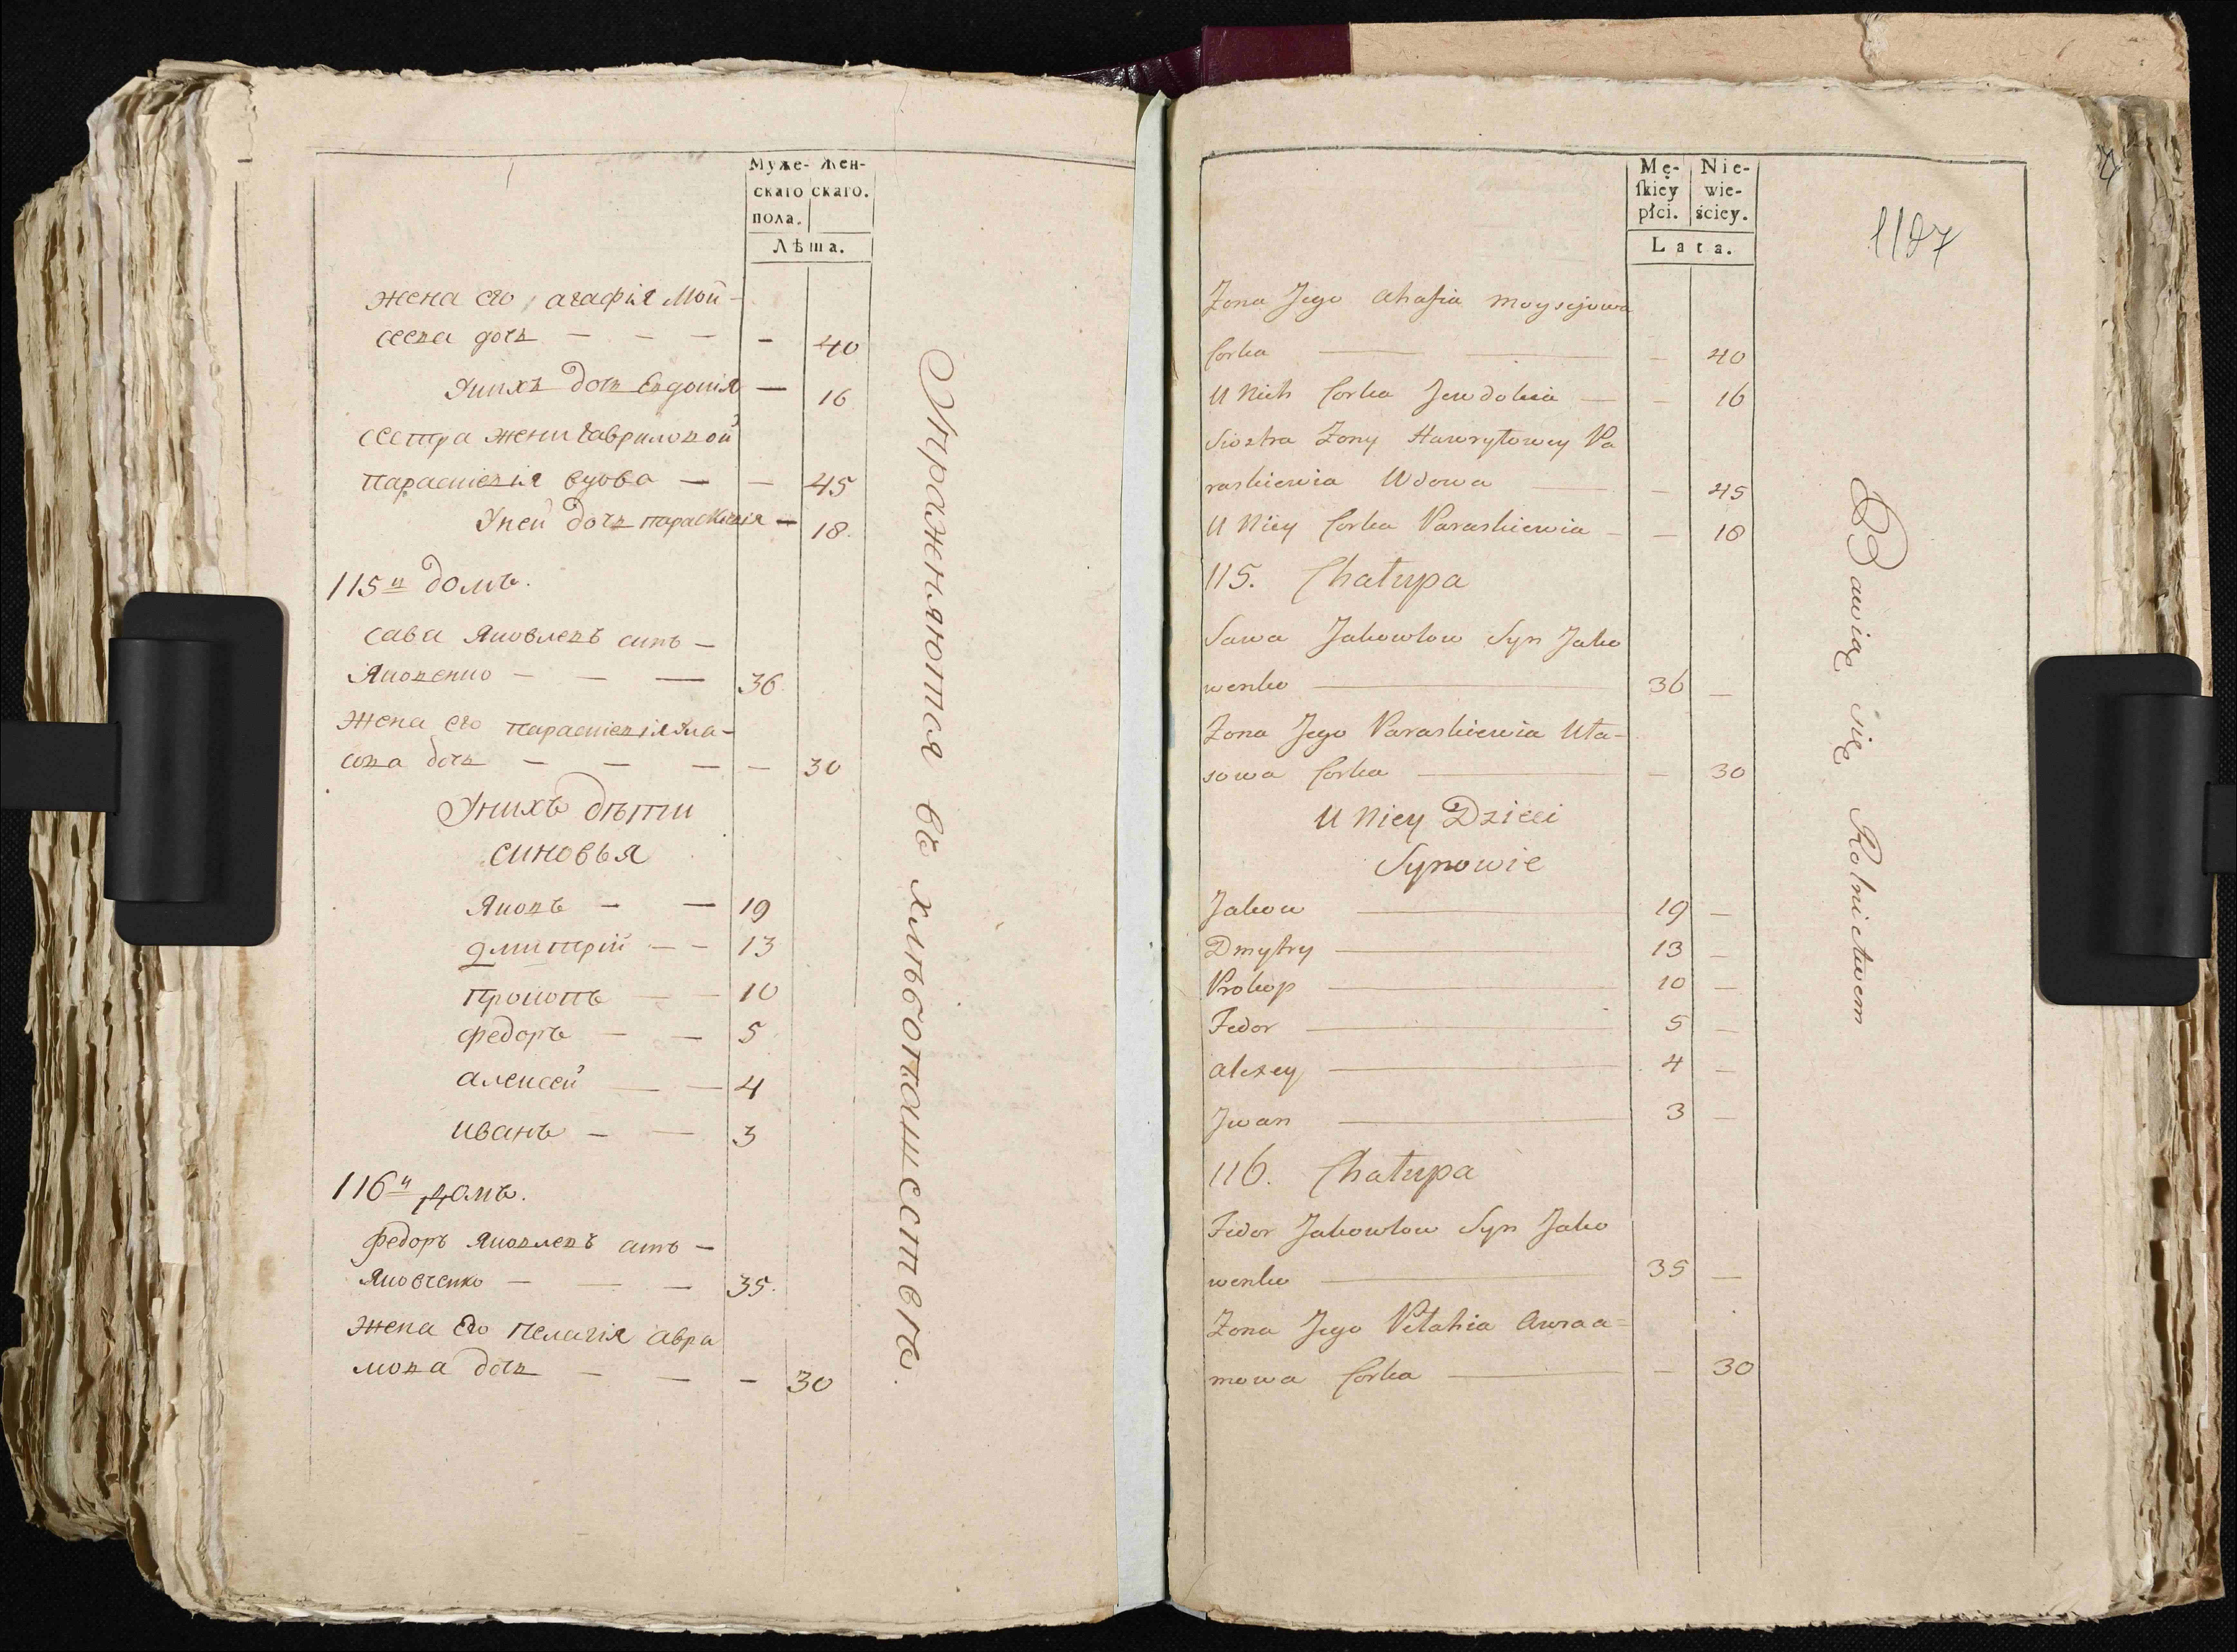 Муже- Жен-
скаго скаго.
пола.
Лѣта.
жена его агафія Мой-
сеева дочь — — — — 40
Унихъ дочь Евдокія — 16
сестра жени Гавриловой
параскевія вдова — — 45
Уней дочь параскевія — 18.
115й домъ.
сава Яковлевъ синъ —
Яковенко — — — 36
жена его параскевія Ула-
сова дочь — — — — 30
Унихъ дѣти
синовья
Яковъ — — 19
дмитрій — — 13
прокопъ — — 10
федоръ — — 5
алексей — — 4
иванъ — — 3
116й домъ.
федоръ Яковлевъ синъ —
Яковченко — — — 35.
жена Его пелагія авра
мова дочь — — — 30
Упражняются въ хлѣбопашесствѣ.
Mę- Nie-
skiey wie-
płci. ściey.
Lata.
1107
Zona Jego Ahafia Moysejowa
Corka — — — 40
U Nich Corka Jewdokia — — 16
Siostra Zony Hawryłowey Pa
raskiewia Wdowa — — 45
U Niey Corka Paraskiewia — — 18
115. Chałupa
Sawa Jakowlow Syn Jako
wenko — 36 —
Zona Jego Paraskiewia Ula-
sowa Corka — — 30
U Niey Dzieci
Synowie
Jakow — 19 —
Dmytry — 13 —
Prokop — 10 —
Fedor — 5 —
Alexey — 4 —
Jwan — 3 —
116. Chałupa
Fedor Jakowlow Syn Jako
wenko — 35 —
Zona Jego Pelahia Awraa=
mowa Corka — — 30
Bawią się Rolnictwem